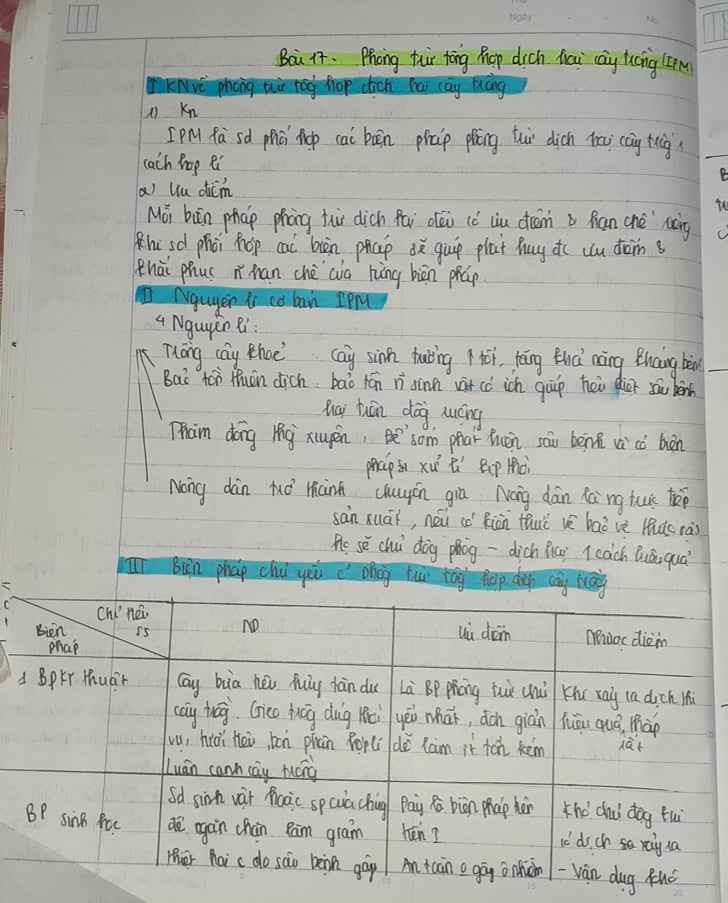 Ngày No.
Bài 17. Phòng trừ tổng hợp dịch hại cây trồng (IPM)
I KN về phòng trừ tổg hợp dịch hại cây trồng
1) Kn
IPM là sd phối hợp các biện pháp phòng trừ dịch hại cây trồg 1
cách hợp lí
a) Ưu điểm
Mỗi biện pháp phòng trừ dịch hại đều có ưu điểm & hạn chế riêng
khi sd phối hợp các biện pháp sẽ giúp phát huy đc ưu điểm &
khắc phục n hạn chế của từng biện pháp.
II Nguyên lí cơ bản IPM
4 Nguyên lí:
Trồng cây khoẻ cây sinh trưởng tốt, tăng khả năng kháng bệnh
Bảo tồn thiên địch: bảo tồn n sinh vật có ích giúp tiêu diệt sâu bệnh
hại trên đồg ruộng
Thăm đồng thg xuyên, Để sớm phát hiện sâu bệnh và có biện
pháp xử lí kịp thời
Nông dân trở thành chuyên gia. Nông dân là ng trực tiếp
sản xuất, nếu có kiến thức về bảo vệ thực vật
họ sẽ chủ độg phòg - dịch hại 1 cách hiệu quả
III Biện pháp chủ yếu c' phòg trừ tổg hợp dịch cây trồg
Chỉ tiêu ss
Biện pháp
ND Ưu điểm Nhược điểm
1 BP Kỹ thuật
Cày bừa tiêu hủy tàn dư Là BP phòng trừ chủ Khi xảy ra dịch thì
cây trồg. Gieo trồg đúg thời yếu nhất, đơn giản hiệu quả thấp
vụ, tưới tiêu, bón phân hợp lí dễ làm ít tốn kém
Luân canh cây trồng
BP sinh học
Sd sinh vật hoặc sp của chúng Đây là biện pháp tiên khó chủ độg khi
để ngăn chặn làm giảm tiến có dịch xảy ra
thiệt hại do sâu bệnh gây An toàn o gây ô nhiễm - Vận dụg khó